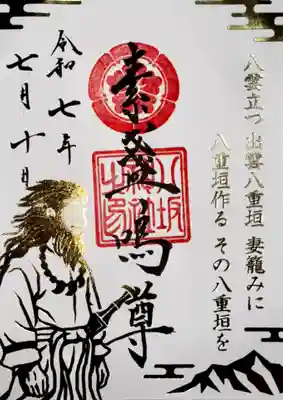 八雲立つ 出雲八重垣 妻籠みに
八重垣作る その八重垣を
素盞鳴尊
令和七年
七月十日